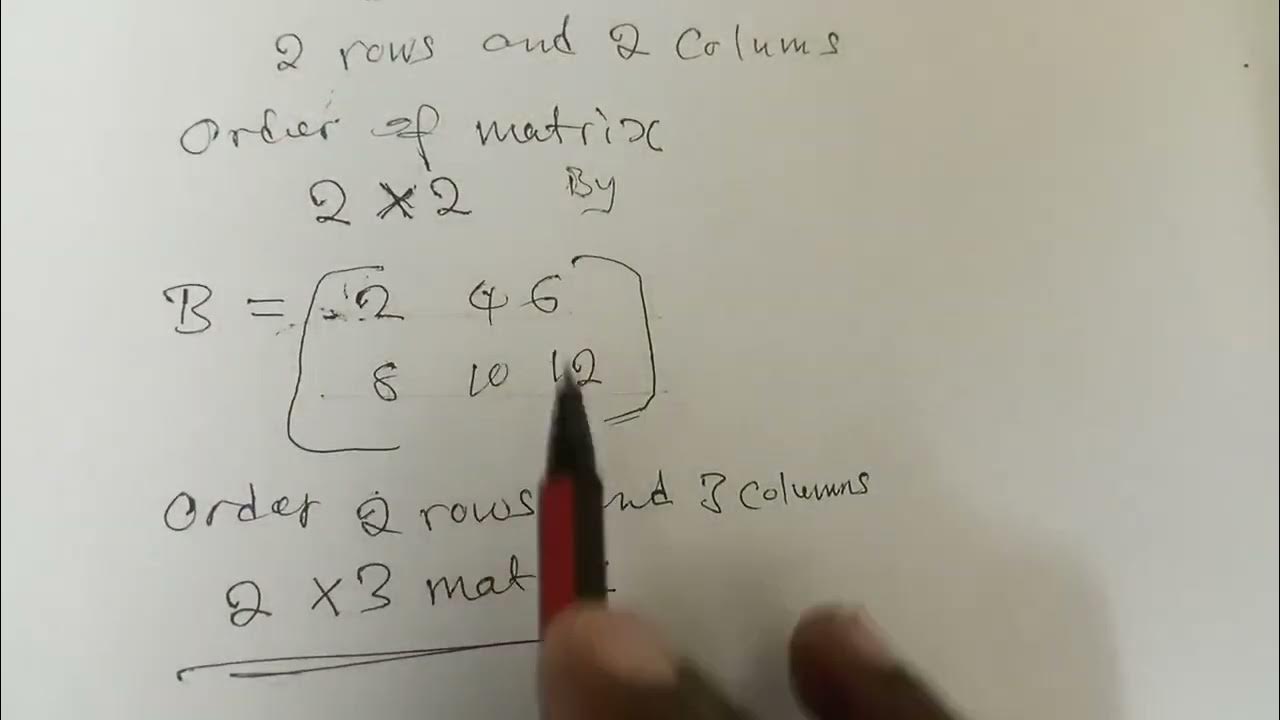 2 rows and 2 Colums
Order of matrix
2 × 2 By
B = 2 4 6
8 10 12
Order 2 rows and 3 columns
2 × 3 mat